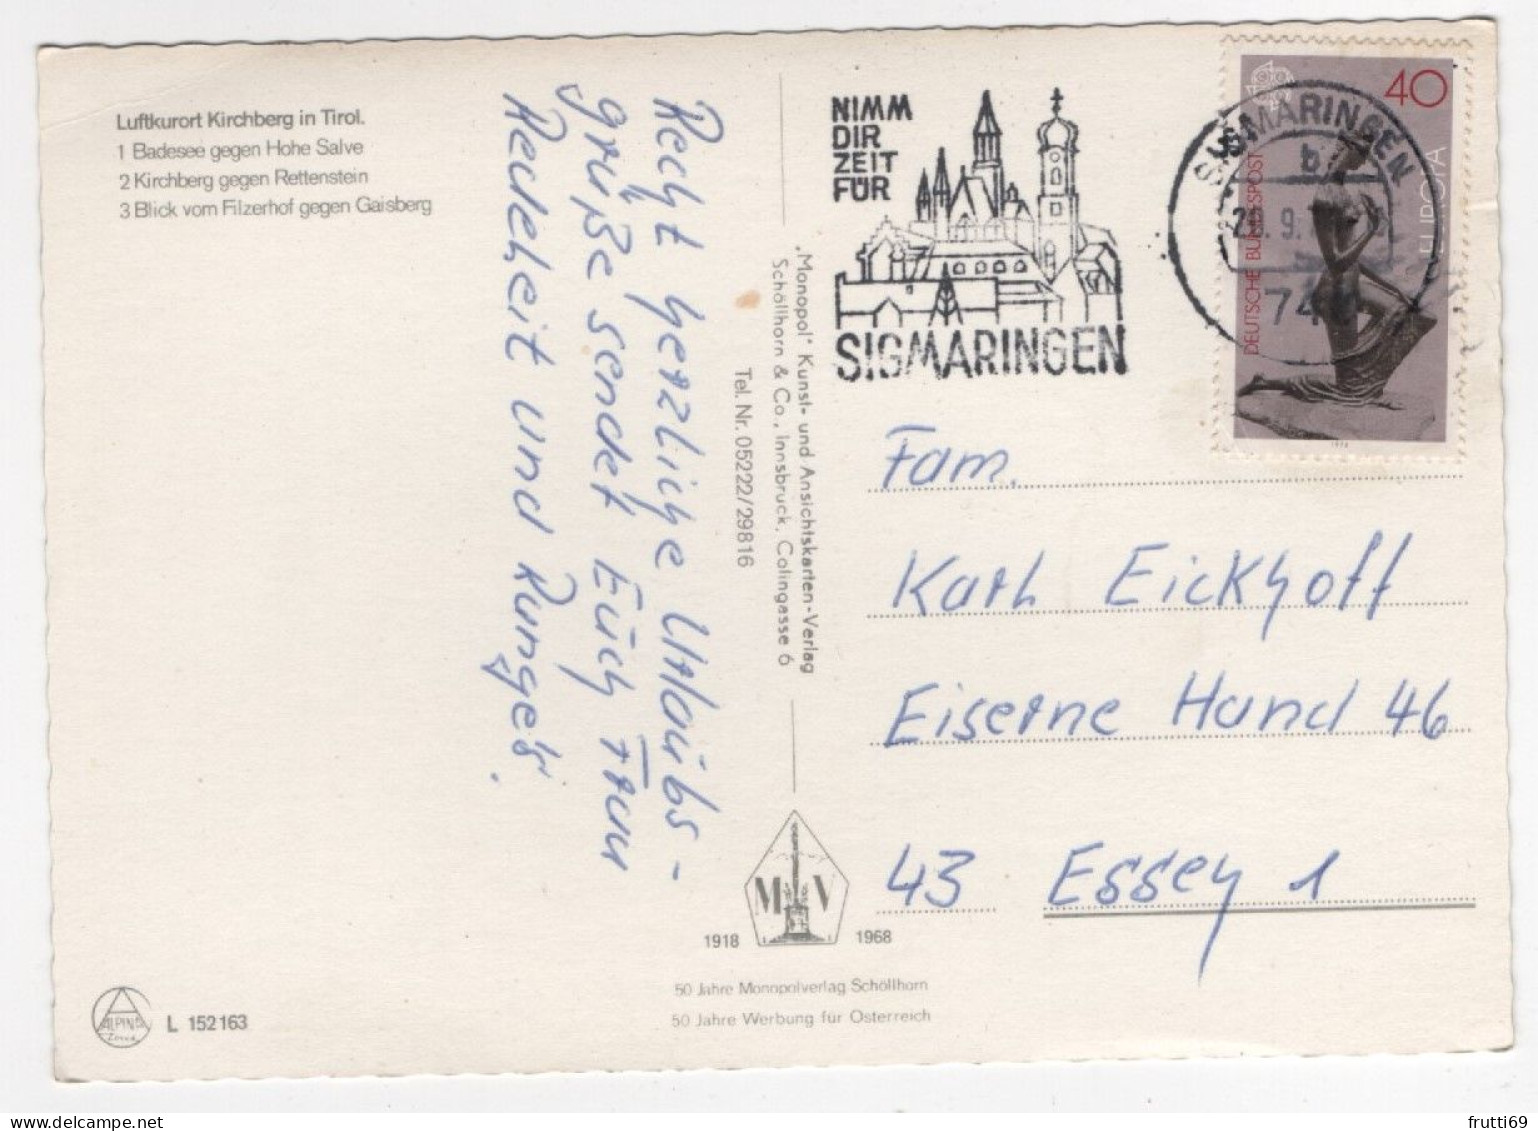 Luftkurort Kirchberg in Tirol.
1 Badesee gegen Hohe Salve
2 Kirchberg gegen Rettenstein
3 Blick vom Filzerhof gegen Gaisberg
Recht herzliche Urlaubs-
grüße sendet Euch Frau
Redeheit und Runge's.
„Monopol" Kunst- und Ansichtskarten-Verlag
Schöllhorn & Co., Innsbruck, Colingasse 6
Tel. Nr. 05222/29816
NIMM
DIR
ZEIT
FÜR
SIGMARINGEN
SIGMARINGEN
b
20.9.
40
DEUTSCHE BUNDESPOST
EUROPA
Fam.
Karl Eickhoff
Eiserne Hand 46
43 Essen 1
M V
1918 1968
50 Jahre Monopolverlag Schöllhorn
50 Jahre Werbung für Österreich
ALPINA
L 152163
frutti69